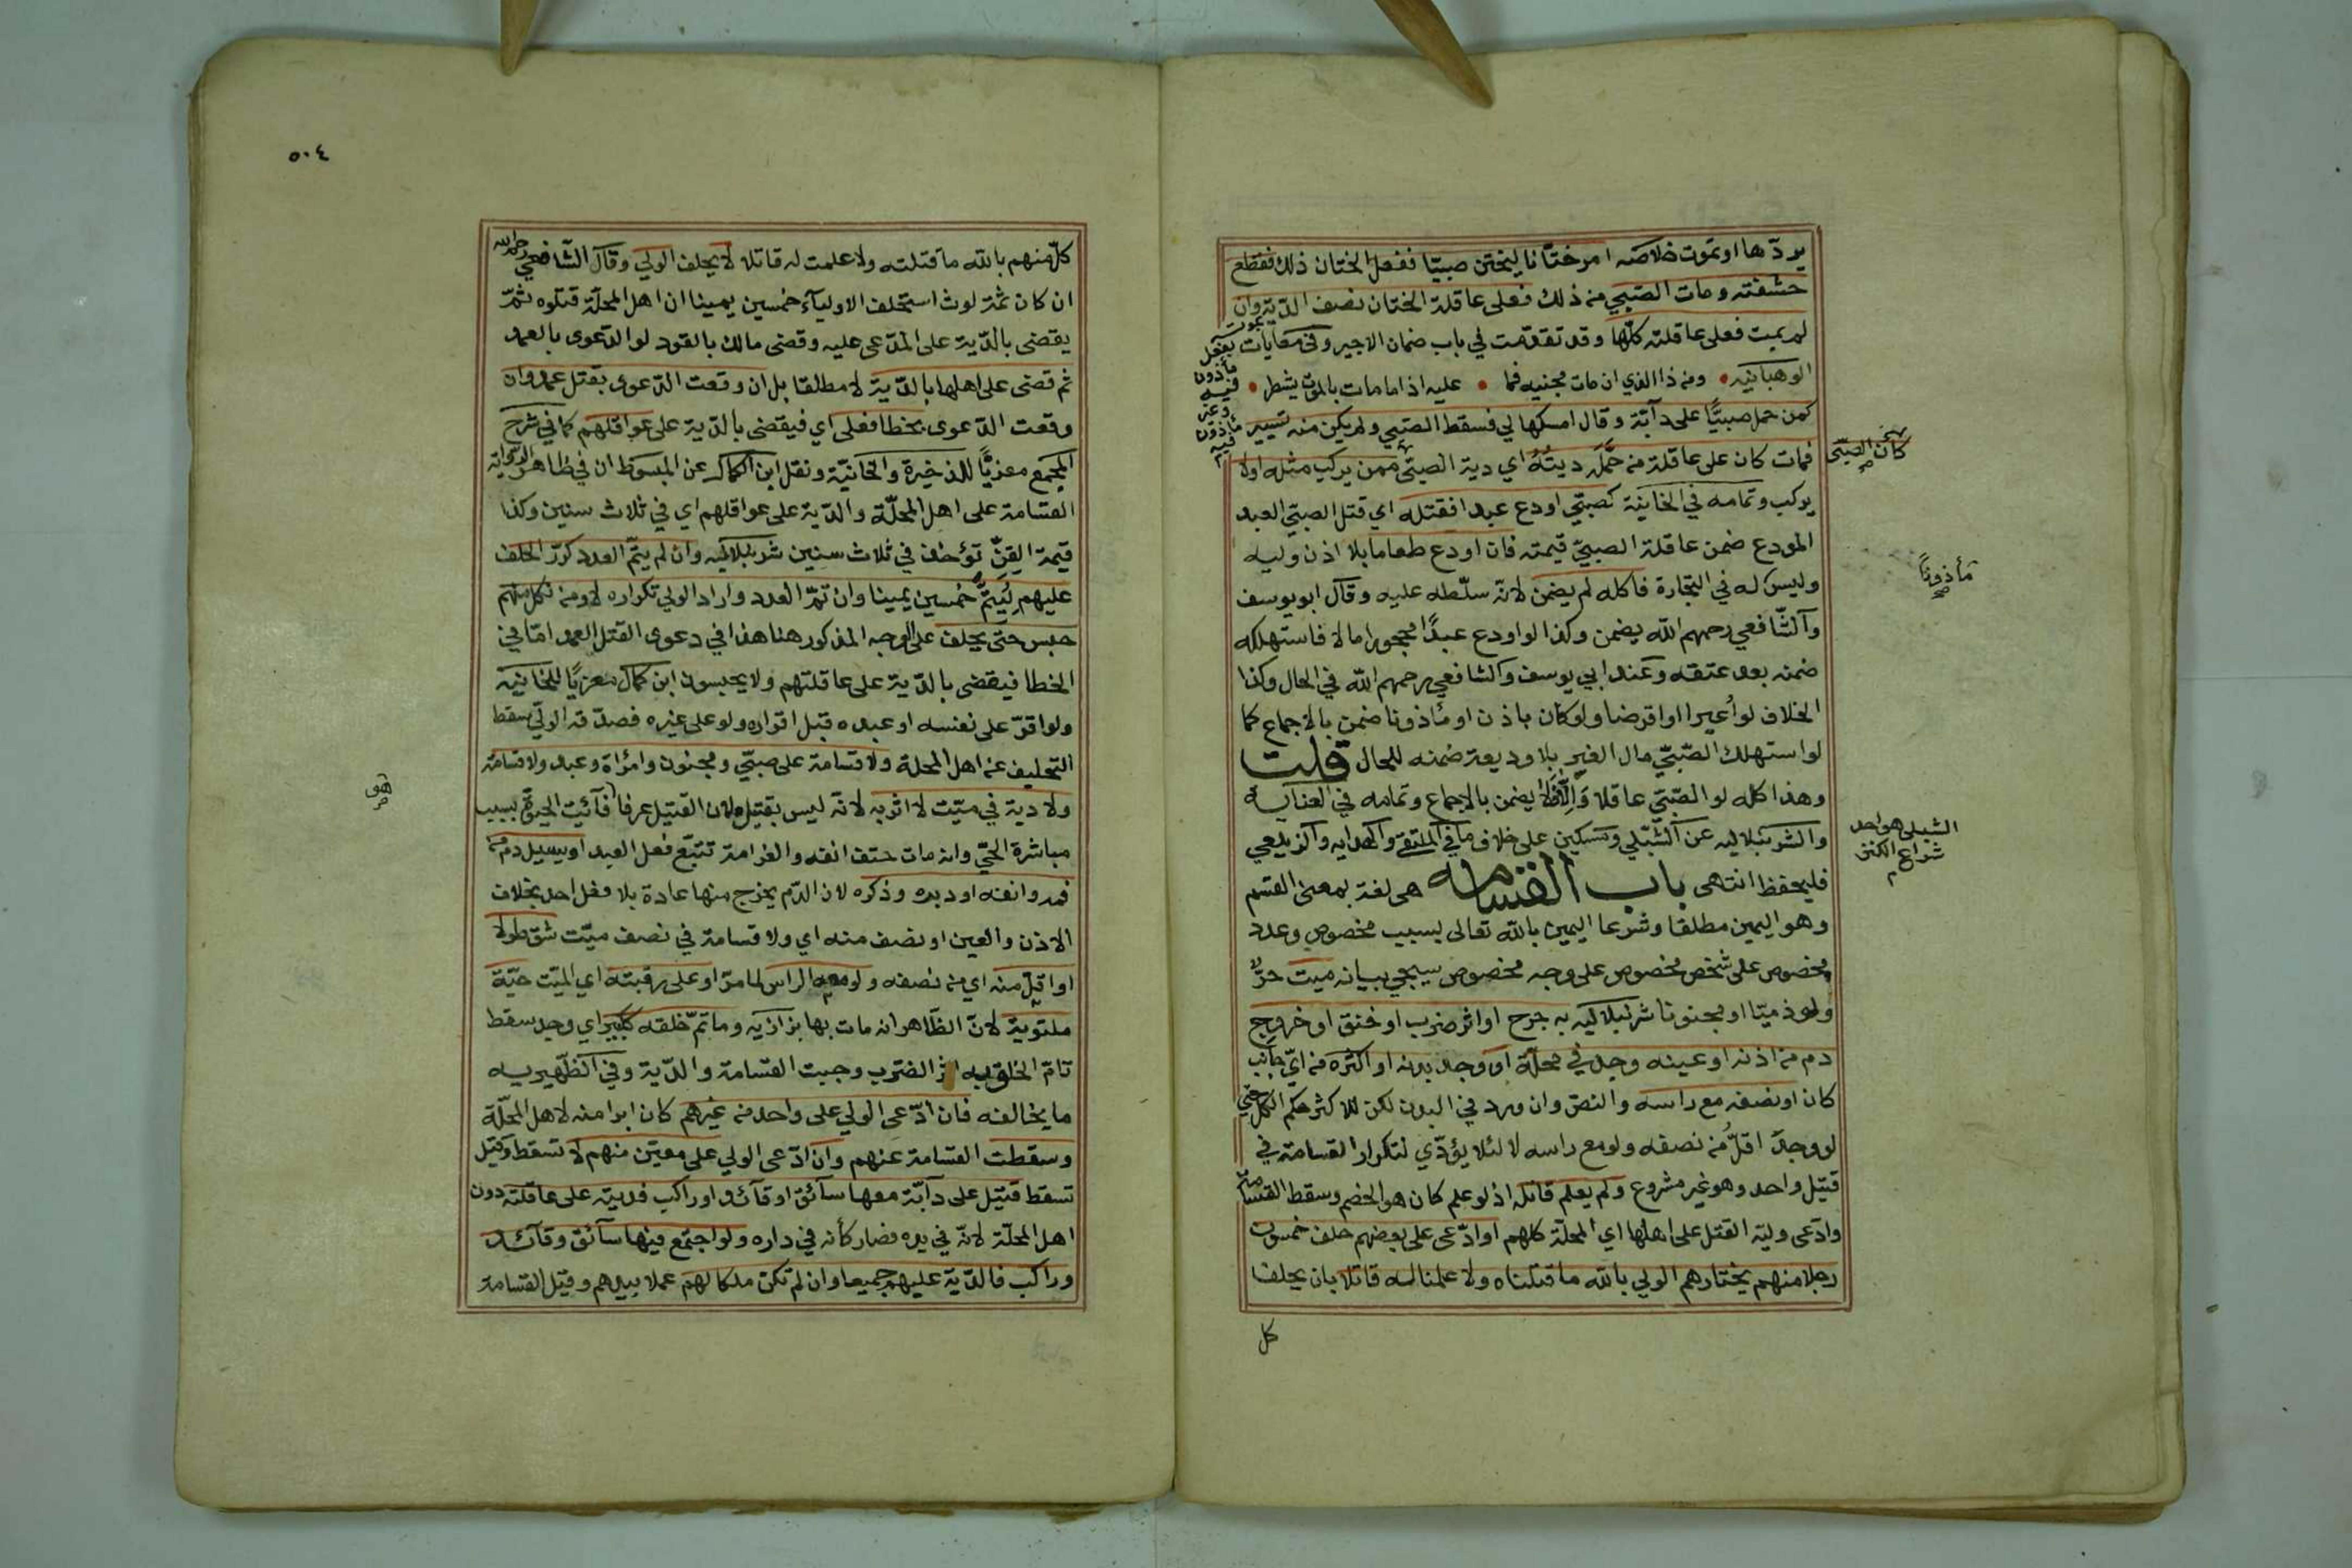 يردّها او تموت خلاصه امر ختّانا ليختن صبيّا ففعل الختان ذلك فقطع
حشفته ومات الصبي من ذلك فعلى عاقلة الختان نصف الدية وان
لم يمت فعلى عاقلته كلّها وقد تقدّمت في باب ضمان الاجير وفي معايات
الوهبانيه ومن ذا الذي ان مات مجنيه فما عليه اذا ما مات بالموت يشطر
كمن حمل صبيّا على دآبّة وقال امسكها لي فسقط الصبي ولم يكن منه تسيير
فمات كان على عاقلة من حَمَلَ ديتُهُ اي دية الصبي ممن يركب مثله اولا
يركب وتمامه في الخانية كصبيّ اودع عبدا فقتله اي قتل الصبيّ العبد
المودع ضمن عاقلة الصبيّ قيمته فان اودع طعاما بلا اذن وليه
وليس له في التجارة فاكله لم يضمن لانّه سلّطه عليه وقال ابو يوسف
والشّافعي رحمهم الله يضمن وكذا لو اودع عبدًا محجورا مالا فاستهلكه
ضمنه بعد عتقه وعند ابي يوسف والشافعي رحمهم الله في الحال وكذا
الخلاف لو أُعيرا او اقرضا ولو كان باذن او مأذونا ضمن بالاجماع كما
لو استهلك الصّبيّ مال الغير بلا وديعة ضمنه للحال قلت
وهذا كله لو الصّبيّ عاقلا وَاِلّا فلا يضمن بالاجماع وتمامه في العنايه
والشرنبلاليه عن الشّبلي ومسكين على خلاف ما في الملتقى والهدايه والزيلعي
فليحفظ انتهى باب القسامه هى لغة بمعنى القسم
وهو اليمين مطلقا وشرعا اليمين بالله تعالى بسبب مخصوص وعدد
مخصوص على شخص مخصوص على وجه مخصوص سيجي بيانه ميت حرّ
ولو ذميّا او مجنونا شرنبلاليه به جرح او اثر ضرب او خنق او خروج
دم من اذنه او عينه وجد في محلّة او وجد بدنه او اكثره من ايّ جانب
كان او نصفه مع راسه والنصّ وان ورد في البدن لكن للاكثر حكم الكل حتي
لو وجد اقلُّ من نصفه ولو مع راسه لا لئلا يؤدّي لتكرار القسامة في
قتيل واحد وهو غير مشروع ولم يعلم قاتله اذ لو علم كان هو الخصم وسقط القسامة
وادّعى وليّه القتل على اهلها اي المحلّة كلهم او ادّعى على بعضهم حلف خمسون
رجلا منهم يختارهم الولي بالله ما قتلناه ولا علمنا له قاتلا بان يحلف
كل
كان الصبيّ
مأذونًا
الشبلي هو احد
شراح الكنز
٥٠٤
كلّ منهم بالله ما قتلته ولا علمت له قاتلا لا يحلف الولي وقال الشّافعي رحمه الله
ان كان ثمّة لوث استحلف الاوليآء خمسين يمينا ان اهل المحلّة قتلوه ثمّ
يقضى بالدّية على المدّعى عليه وقضى مالك بالقود لو الدّعوى بالعمد
ثم قضى على اهلها بالدّية لا مطلقا بل ان وقعت الدّعوى بقتل عمد وان
وقعت الدّعوى بخطا فعلى اي فيقضى بالدّية على عواقلهم كما في شرح
المجمع معزيًّا للذخيرة والخانيّة ونقل ابن الكمال عن المبسوط ان في ظاهر الرواية
القسامة على اهل المحلّة والدّية على عواقلهم اي في ثلاث سنين وكذا
قيمة القِنّ تؤخذ في ثلاث سنين شرنبلاليه وان لم يتمّ العدد كرّر الحلف
عليهم لِيَتِمَّ خمسين يمينا وان تمّ العدد واراد الولي تكراره لا ومن نكل منهم
حبس حتى يحلف على الوجه المذكور هنا هذا في دعوى القتل العمد امّا في
الخطا فيقضى بالدّية على عاقلتهم ولا يحبسون ابن كمال معزيًا للخانيّه
ولو اقرّ على نفسه او عبده قبل اقراره ولو على غيره فصدّقه الوليّ سقط
التحليف عن اهل المحلة ولا قسامة على صبيّ ومجنون وامرأة وعبد ولا قسامة
ولا دية في ميّت لا اثر به لانّه ليس بقتيل لان القتيل عرفا فآئت الحيوة بسبب
مباشرة الحيّ وانه مات حتف انفه والغرامة تتبّع فعل العبد او يسيل دم من
فمه وانفه او دبره وذكره لان الدّم يخرج منها عادة بلا فعل احد بخلاف
الاذن والعين او نصف منه اي ولا قسامة في نصف ميّت شقّ طولا
او اقلّ منه اي من نصفه ولو معه الراس لما مرّ او على رقبته اي الميّت حيّة
ملتوية لانّ الظّاهر انه مات بها بزازيه وما تمّ خلقه ككبير اي وجد سقط
تآمّ الخلق به اثر الضرب وجبت القسامة والدّية وفي الظّهيريه
ما يخالفه فان ادّعى الولي على واحد من غيرهم كان ابرا منه لاهل المحلّة
وسقطت القسامة عنهم وان ادّعى الولي على معيّن منهم لا تسقط وقيل
تسقط قتيل على دآبّة معها سآئق او قآئد او راكب فديته على عاقلته دون
اهل المحلّة لانّه في يده فصار كأنه في داره ولو اجتمع فيها سآئق وقآئد
وراكب فالدّية عليهم جميعا وان لم تكن ملكا لهم عملا بيدهم وقيل القسامة
هو